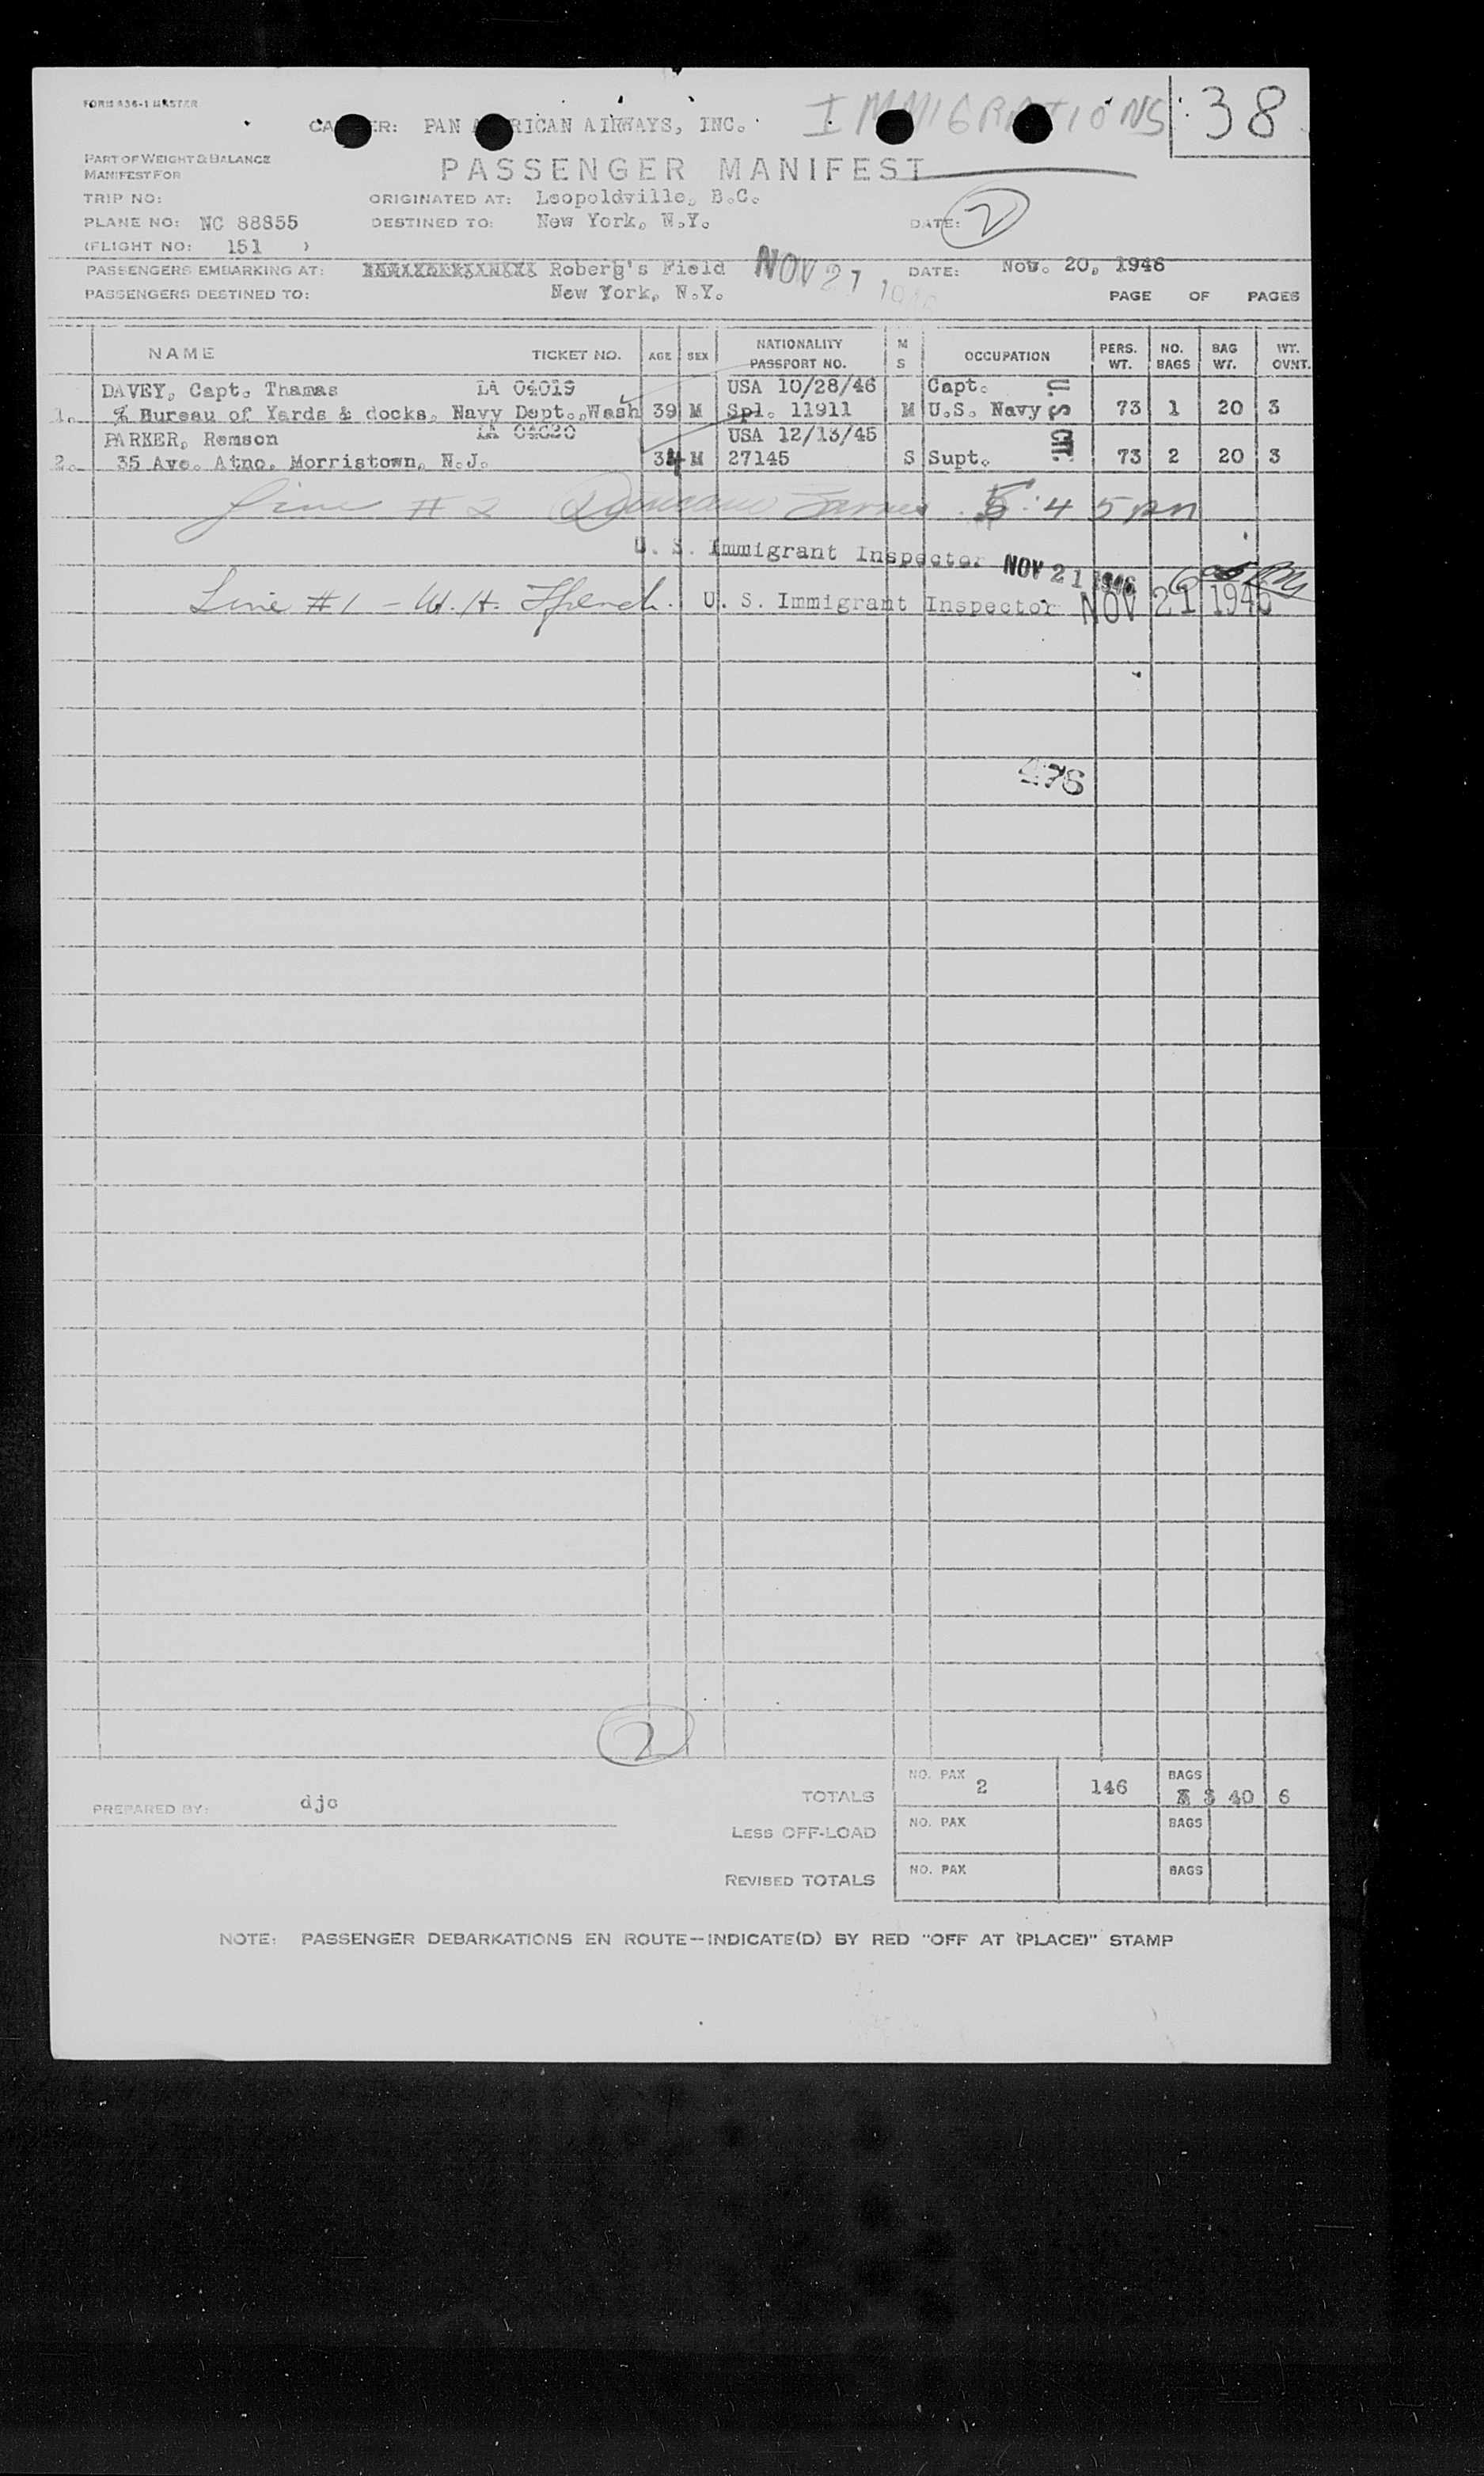 FORM 436-1 MASTER
CARRIER: PAN AMERICAN AIRWAYS, INC. IMMIGRATIONS 38
PART OF WEIGHT & BALANCE
MANIFEST FOR
PASSENGER MANIFEST
TRIP NO: ORIGINATED AT: Leopoldville, B.C.
PLANE NO: NC 88855 DESTINED TO: New York, N.Y. DATE: 2
(FLIGHT NO: 151 )
PASSENGERS EMBARKING AT: Roberg's Field NOV 21 1946 DATE: Nov. 20, 1946
PASSENGERS DESTINED TO: New York, N.Y. PAGE OF PAGES
NAME TICKET NO. AGE SEX NATIONALITY PASSPORT NO. M S OCCUPATION PERS. WT. NO. BAGS BAG WT. WT. OVNT.
DAVEY, Capt. Thamas LA 04019 USA 10/28/46 Capt.
1. % Bureau of Yards & docks, Navy Dept.,Wash 39 M Spl. 11911 M U.S. Navy 73 1 20 3
U.S CIT.
PARKER, Remson LA 04020 USA 12/13/45
2. 35 Ave. Atno, Morristown, N.J. 34 M 27145 S Supt. 73 2 20 3
Line # 2 5:45 pm
U. S. Immigrant Inspector NOV 21 1946
Line #1 - W. H. U. S. Immigrant Inspector NOV 21 1946
476
2
TOTALS NO. PAX 2 146 BAGS 3 40 6
PREPARED BY: djc
LESS OFF-LOAD NO. PAX BAGS
REVISED TOTALS NO. PAX BAGS
NOTE: PASSENGER DEBARKATIONS EN ROUTE—INDICATE(D) BY RED "OFF AT (PLACE)" STAMP